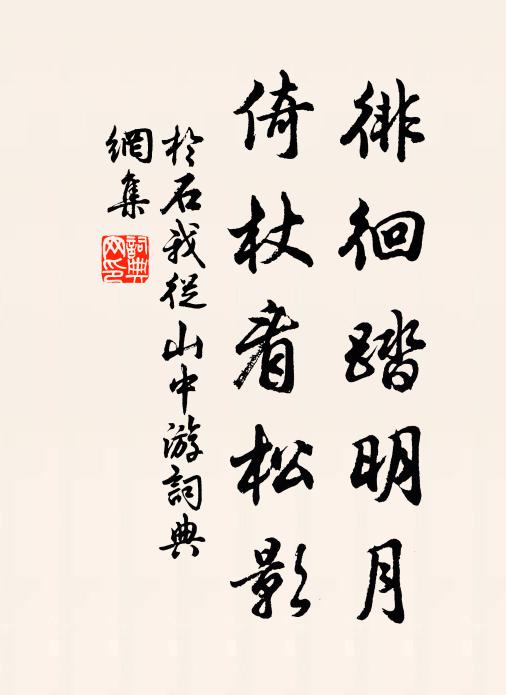 徘徊踏明月
倚杖看松影
於石我從山中游詞典
網集
詞典
网印